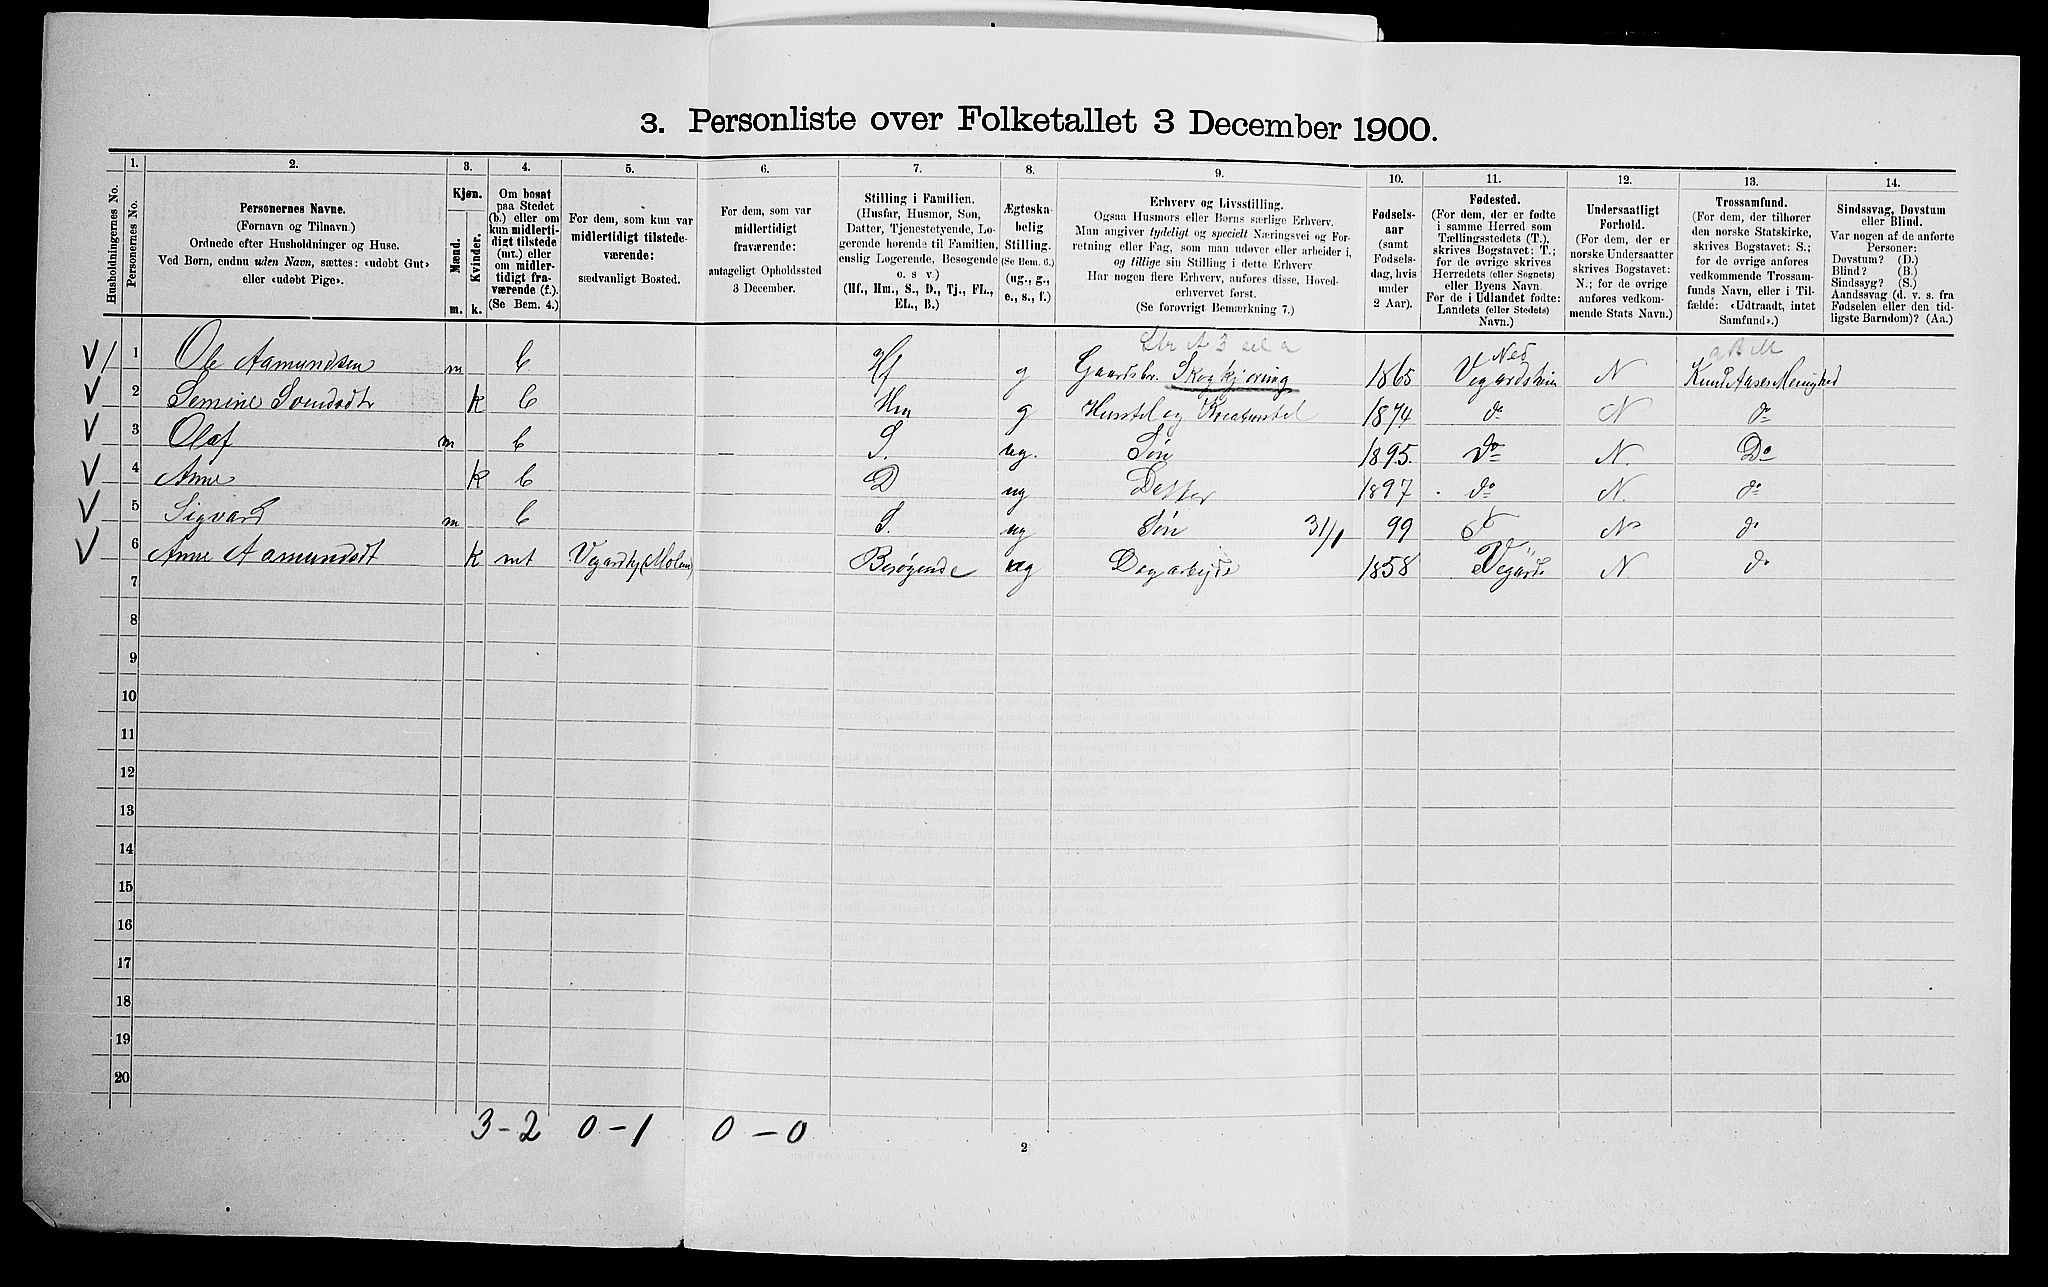 3. Personliste over Folketallet 3 December 1900.
Husholdningernes No.
1. Personernes No.
2. Personernes Navne.
(Fornavn og Tilnavn.)
Ordnede efter Husholdninger og Huse.
Ved Børn, endnu uden Navn, sættes: «udøbt Gut»
eller «udøbt Pige».
3. Kjøn.
Mænd. Kvinder.
m. k.
4. Om bosat
paa Stedet
(b.) eller om
kun midlerti-
digt tilstede
(mt.) eller
om midler-
tidigt fra-
værende (f.).
(Se Bem. 4.)
5. For dem, som kun var
midlertidigt tilstede-
værende:
sædvanligt Bosted.
6. For dem, som var
midlertidigt
fraværende:
antageligt Opholdssted
3 December.
7. Stilling i Familien.
(Husfar, Husmor, Søn,
Datter, Tjenestetyende, Lo-
gerende hørende til Familien,
enslig Logerende, Besøgende
o. s v.)
(Hf., Hm., S., D., Tj., FL.,
EL., B.)
8. Ægteska-
belig
Stilling.
(Se Bem. 6.)
(ug., g.,
e., s., f.)
9. Erhverv og Livsstilling.
Ogsaa Husmors eller Børns særlige Erhverv.
Man angiver tydeligt og specielt Næringsvei og For-
retning eller Fag, som man udøver eller arbeider i,
og tillige sin Stilling i dette Erhverv
Har nogen flere Erhverv, anføres disse, Hoved-
erhvervet først.
(Se forøvrigt Bemærkning 7.)
10. Fødsels-
aar
(samt
Fødsels-
dag, hvis
under
2 Aar).
11. Fødested.
(For dem, der er fødte
i samme Herred som
Tællingsstedets (T.),
skrives Bogstavet: T.;
for de øvrige skrives
Herredets (eller Sognets)
eller Byens Navn.
For de i Udlandet fødte:
Landets (eller Stedets)
Navn.)
12. Undersaatligt
Forhold.
(For dem, der er
norske Undersaatter
skrives Bogstavet:
N.; for de øvrige
anføres vedkom-
mende Stats Navn.)
13. Trossamfund.
(For dem, der tilhører
den norske Statskirke,
skrives Bogstavet: S.;
for de øvrige anføres
vedkommende Trossam-
funds Navn, eller i Til-
fælde: «Udtraadt, intet
Samfund».)
14. Sindssvag, Døvstum
eller Blind.
Var nogen af de anførte
Personer:
Døvstum? (D.)
Blind? (B.)
Sindssyg? (S.)
Aandssvag (d. v. s. fra
Fødselen eller den tid-
ligste Barndom)? (Aa.)
1 Ole Aamundsen m b Hf g Gaardsbr. Skogkjøring 1865 Ved N
2 k b Hm g Husstel og Kreaturstel 1874 do N do
3 Olaf m b S. ug. Søn 1895. do N. Do
4 Anne k b D ug Datter 1897 do N. do
5 Sigvard m b S. ug Søn 31/1 99 N do
6 Anne Aamundsdt k mt Besøgende ug Dagarbejde 1858 N do
7
8
9
10
11
12
13
14
15
16
17
18
19
20
3-2 0-1 0-0
2